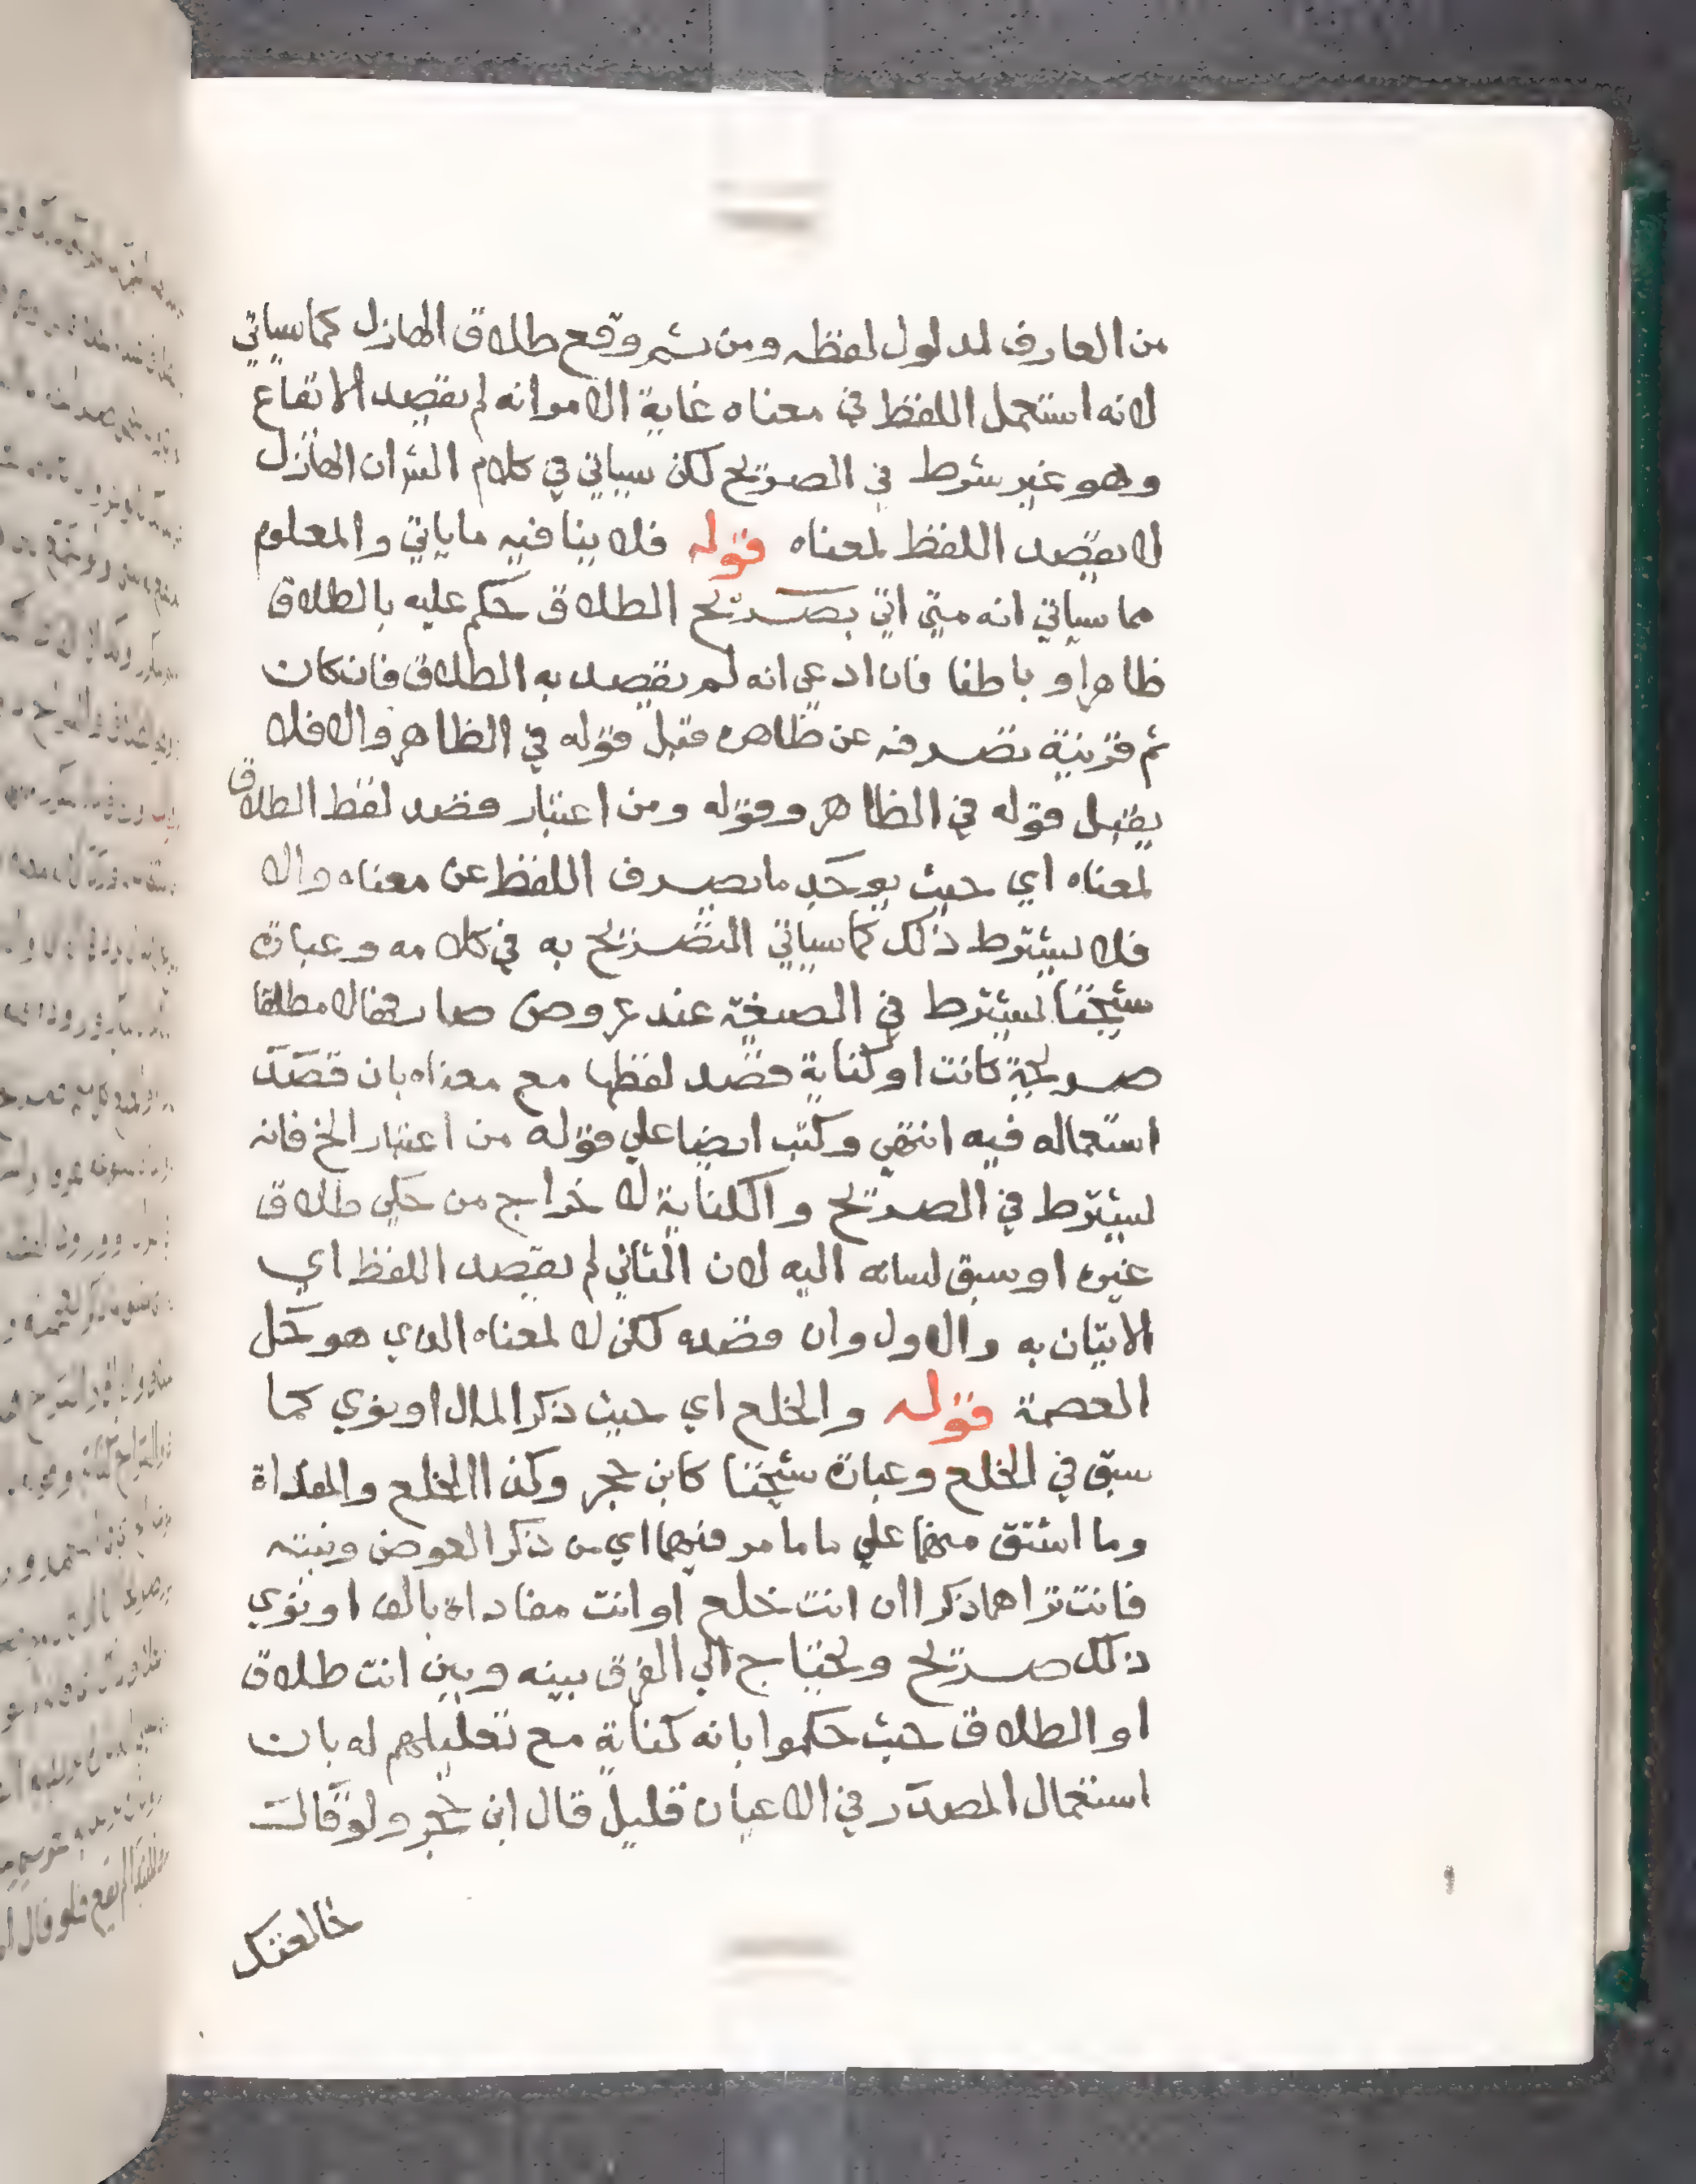 من العارف لمدلول لفظه ومن ثم وقع طلاق الهازل كما سياتي
لانه استعمل اللفظ في معناه غاية الامر انه لم يقصد الايقاع
وهو غير شرط في الصريح لكن سياتي في كلام الش ان الهازل
لا يقصد اللفظ لمعناه قوله فلا ينافيه ما ياتي والمعلوم
مما سياتي انه متي اتي بصريح الطلاق حكم عليه بالطلاق
ظاهرا و باطنا فان ادعي انه لم يقصد به الطلاق فان كان
ثم قرينة تصرفه عن ظاهره قبل قوله في الظاهر والا فلا
يقبل قوله في الظاهر وقوله ومن اعتبار قصد لفظ الطلاق
لمعناه اي حيث يوجد ما يصرف اللفظ عن معناه والا
فلا يشترط ذلك كما سياتي التصريح به في كلامه وعبارة
شيخنا يشترط في الصيغة عند عروض صارفها لا مطلقا
صريحة كانت او كناية قصد لفظها مع معناه بان قصد
استعماله فيه انتهي وكتب ايضا علي قوله من اعتبار الخ فانه
يشترط في الصريح والكناية لاخراج من حكي طلاق
غيره او سبق لسانه اليه لان الثاني لم يقصد اللفظ اي
الاتيان به والاول وان قصده لكن لا لمعناه الذي هو حل
العصمة قوله والخلع اي حيث ذكر المال او نوي كما
سبق في الخلع وعبارة شيخنا كابن حجر وكذا الخلع والمفاداة
وما اشتق منهما علي ما مر فيهما اي من ذكر العوض ونيته
فانت تراهما ذكرا ان انت خلع او انت مفاداة بالف او نوي
ذلك صريح ويحتاج الي الفرق بينه وبين انت طلاق
او الطلاق حيث حكموا بانه كناية مع تعليلهم له بان
استعمال المصدر في الاعيان قليل قال ابن حجر ولو قالت
خالعتك